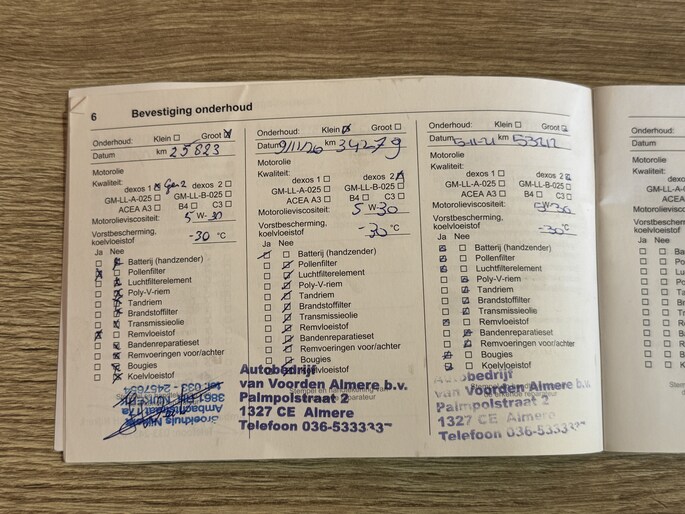 6 Bevestiging onderhoud
Onderhoud: Klein Groot
Datum km 25823
Motorolie
Kwaliteit:
dexos 1 Gen 2 dexos 2
GM-LL-A-025 GM-LL-B-025
ACEA A3 B4 C3
Motorolieviscositeit: 5 W-30
Vorstbescherming,
koelvloeistof -30 °C
Ja Nee
Batterij (handzender)
Pollenfilter
Luchtfilterelement
Poly-V-riem
Tandriem
Brandstoffilter
Transmissieolie
Remvloeistof
Bandenreparatieset
Remvoeringen voor/achter
Bougies
Koelvloeistof
Broekhuis Nijkerk
Ambachtsstraat 17a
3861 RH Nijkerk
Onderhoud: Klein Groot
Datum 9/11/20 km 34279
Motorolie
Kwaliteit:
dexos 1 dexos 2
GM-LL-A-025 GM-LL-B-025
ACEA A3 B4 C3
Motorolieviscositeit: 5 W-30
Vorstbescherming,
koelvloeistof -30 °C
Ja Nee
Batterij (handzender)
Pollenfilter
Luchtfilterelement
Poly-V-riem
Tandriem
Brandstoffilter
Transmissieolie
Remvloeistof
Bandenreparatieset
Remvoeringen voor/achter
Bougies
Koelvloeistof
Autobedrijf
van Voorden Almere b.v.
Palmpolstraat 2
1327 CE Almere
Telefoon 036-533333
Onderhoud: Klein Groot
Datum 5-11-21 km
Motorolie
Kwaliteit:
dexos 1 dexos 2
GM-LL-A-025 GM-LL-B-025
ACEA A3 B4 C3
Motorolieviscositeit: 5W-30
Vorstbescherming,
koelvloeistof -30°C
Ja Nee
Batterij (handzender)
Pollenfilter
Luchtfilterelement
Poly-V-riem
Tandriem
Brandstoffilter
Transmissieolie
Remvloeistof
Bandenreparatieset
Remvoeringen voor/achter
Bougies
Koelvloeistof
Autobedrijf
van Voorden Almere b.v.
Palmpolstraat 2
1327 CE Almere
Telefoon 036-53333
Onderhoud:
Datum
Motorolie
Kwaliteit:
Ja Nee